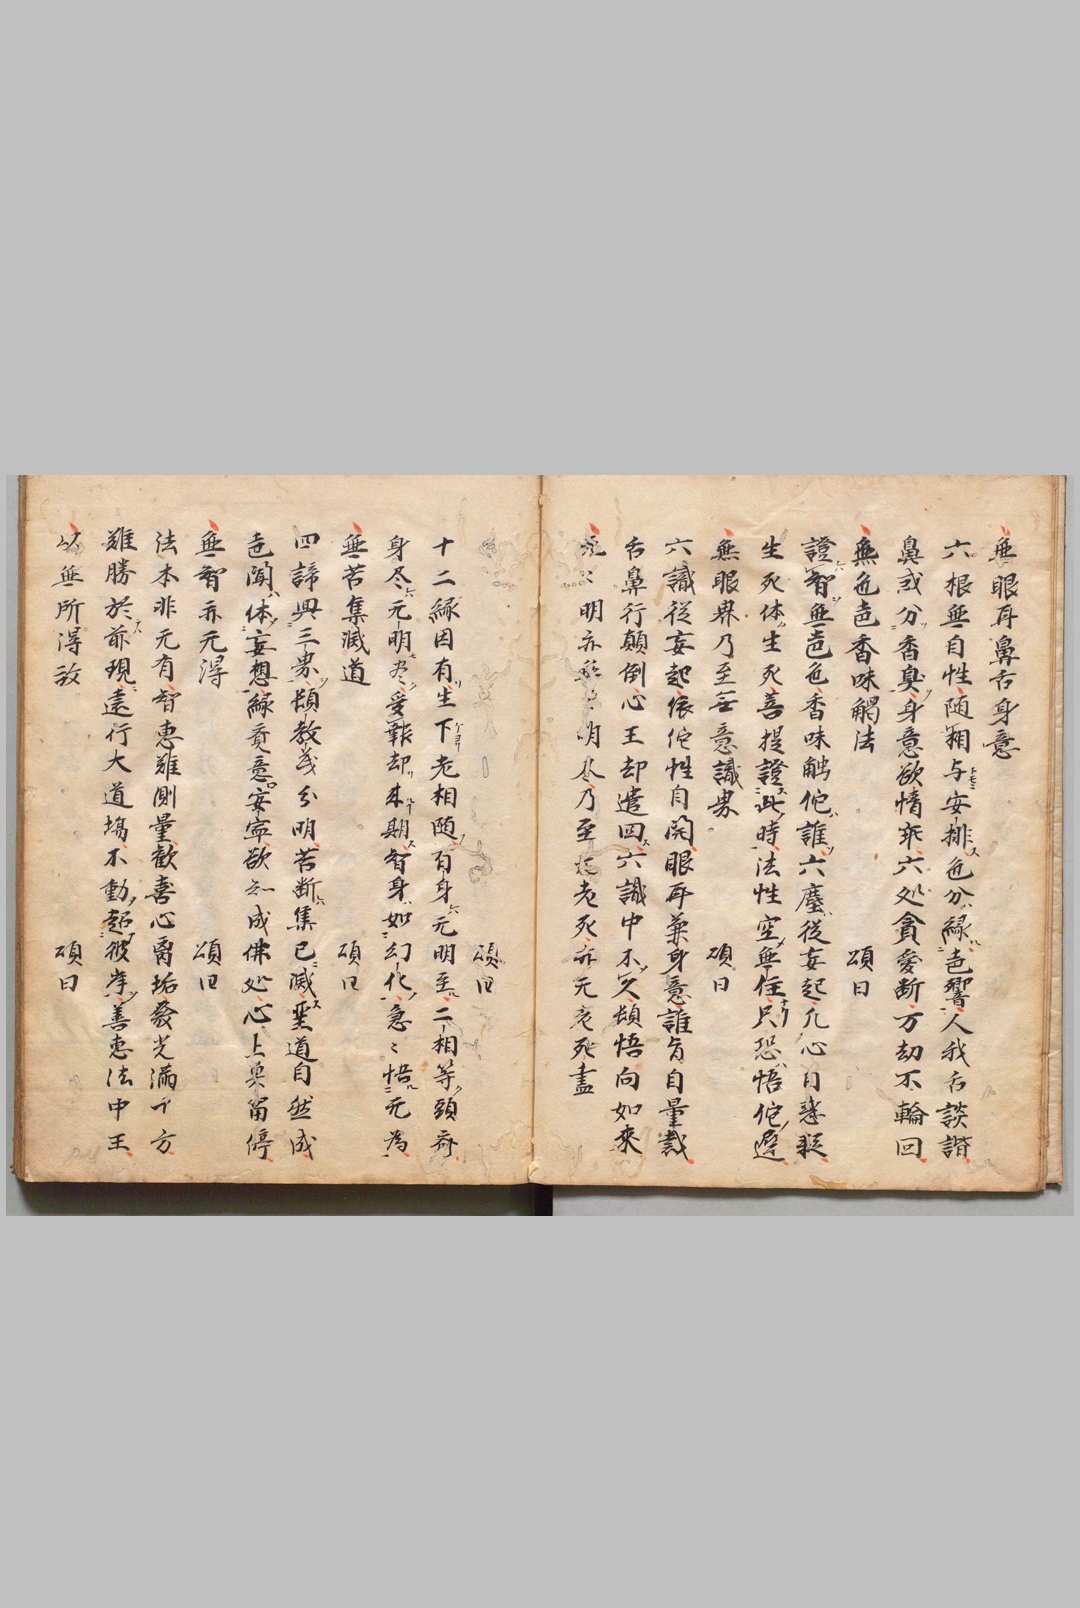 無眼耳鼻舌身意
六根無自性随相与安排色分縁色響人我舌談諧
鼻或分香臭身意欲情乖六処貪愛断万劫不輪回
無色色香味觸法　頌曰
證智無色色香味触佗誰六塵従妄起凡心自惑疑
生死体生死菩提證此時法性空無住只恐悟佗遅
無眼界乃至無意識界　頌曰
六識従妄起依佗性自開眼耳兼身意誰肯自量裁
舌鼻行顛倒心王却遣回六識中不久頓悟向如来
無無明亦無無明尽乃至無老死亦无老死盡
頌曰
十二縁因有生下老相随有身元明至二相等頭齊
身尽元明尽受報却来期智身如幻化急々悟无為
無苦集滅道　頌曰
四諦興三界頓教義分明苦断集已滅聖道自然成
聲聞体妄想縁覚意安寧欲知成佛処心上莫留停
無智亦无得　頌曰
法本非无有智恵難測量歓喜心離垢發光満十方
難勝於前現遠行大道場不動超彼岸善恵法中王
以無所得故　頌曰